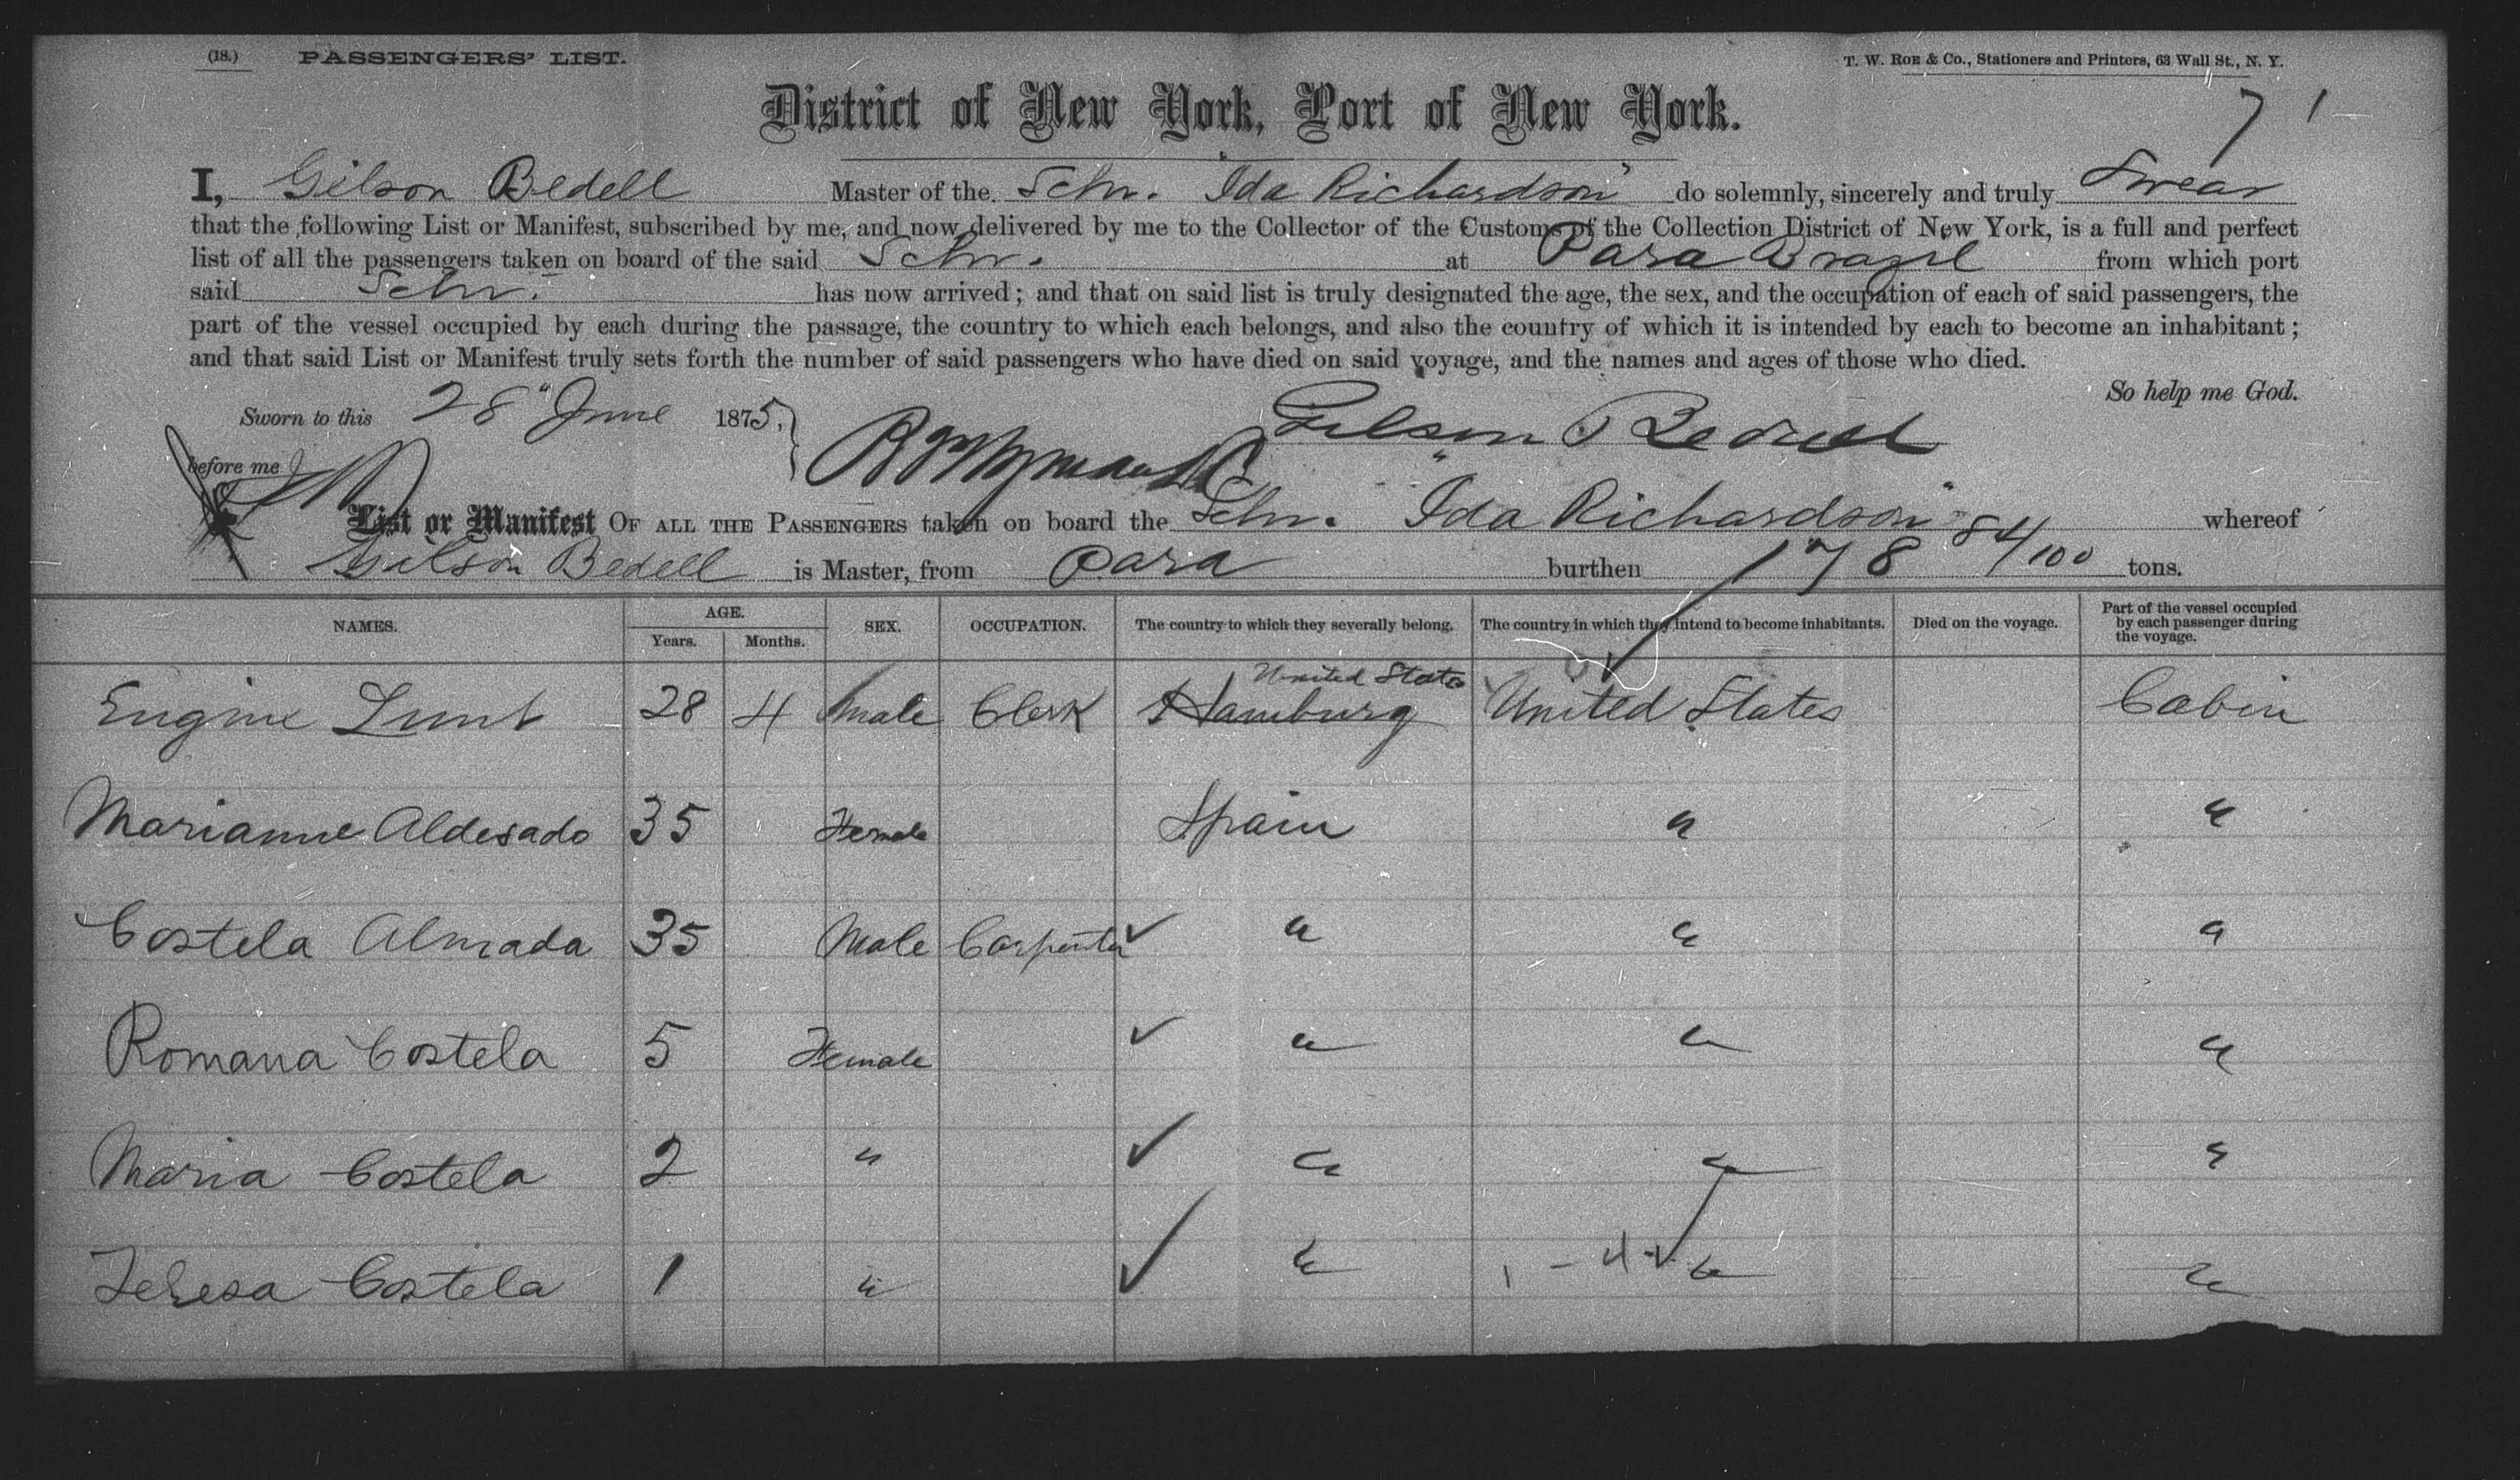 (18.) PASSENGERS' LIST. T. W. Roe & Co., Stationers and Printers, 63 Wall St., N. Y.
District of New York, Port of New York.
7 1
I, Gilson Bedell Master of the Schr. "Ida Richardson" do solemnly, sincerely and truly Swear
that the following List or Manifest, subscribed by me, and now delivered by me to the Collector of the Customs of the Collection District of New York, is a full and perfect
list of all the passengers taken on board of the said Schr. at Para Brazil from which port
said Schr. has now arrived; and that on said list is truly designated the age, the sex, and the occupation of each of said passengers, the
part of the vessel occupied by each during the passage, the country to which each belongs, and also the country of which it is intended by each to become an inhabitant;
and that said List or Manifest truly sets forth the number of said passengers who have died on said voyage, and the names and ages of those who died.
So help me God.
Sworn to this 28" June 1875, Gilson Bedell
before me
List or Manifest OF ALL THE PASSENGERS taken on board the Schr. "Ida Richardson" whereof
Gilson Bedell is Master, from Para burthen 178 84/100 tons.
NAMES. AGE. Years. Months. SEX. OCCUPATION. The country to which they severally belong. The country in which they intend to become inhabitants. Died on the voyage. Part of the vessel occupied by each passenger during the voyage.
United States
Engine Lunt 28 4 Male Clerk Hamburg United States Cabin
Marianne Aldesado 35 Female Spain " "
Costela Almada 35 Male Carpenter ✓ " " "
Romana Costela 5 Female ✓ " " "
Maria Costela 2 " ✓ " " "
Teresa Costela 1 " ✓ " " "